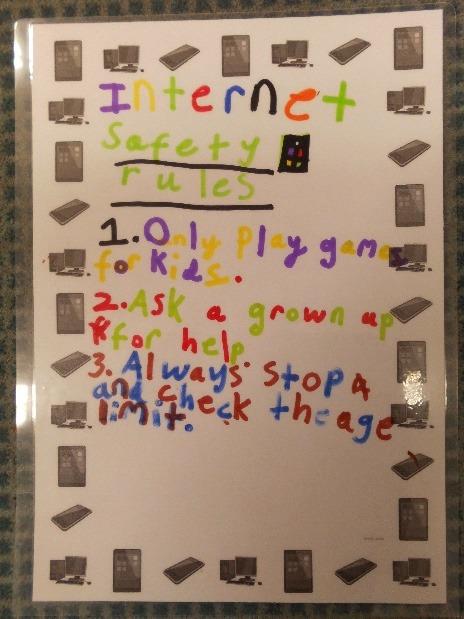 Internet
safety
rules
1. Only play games
for kids.
2. Ask a grown up
for help
3. Always stop
and check the age
limit.